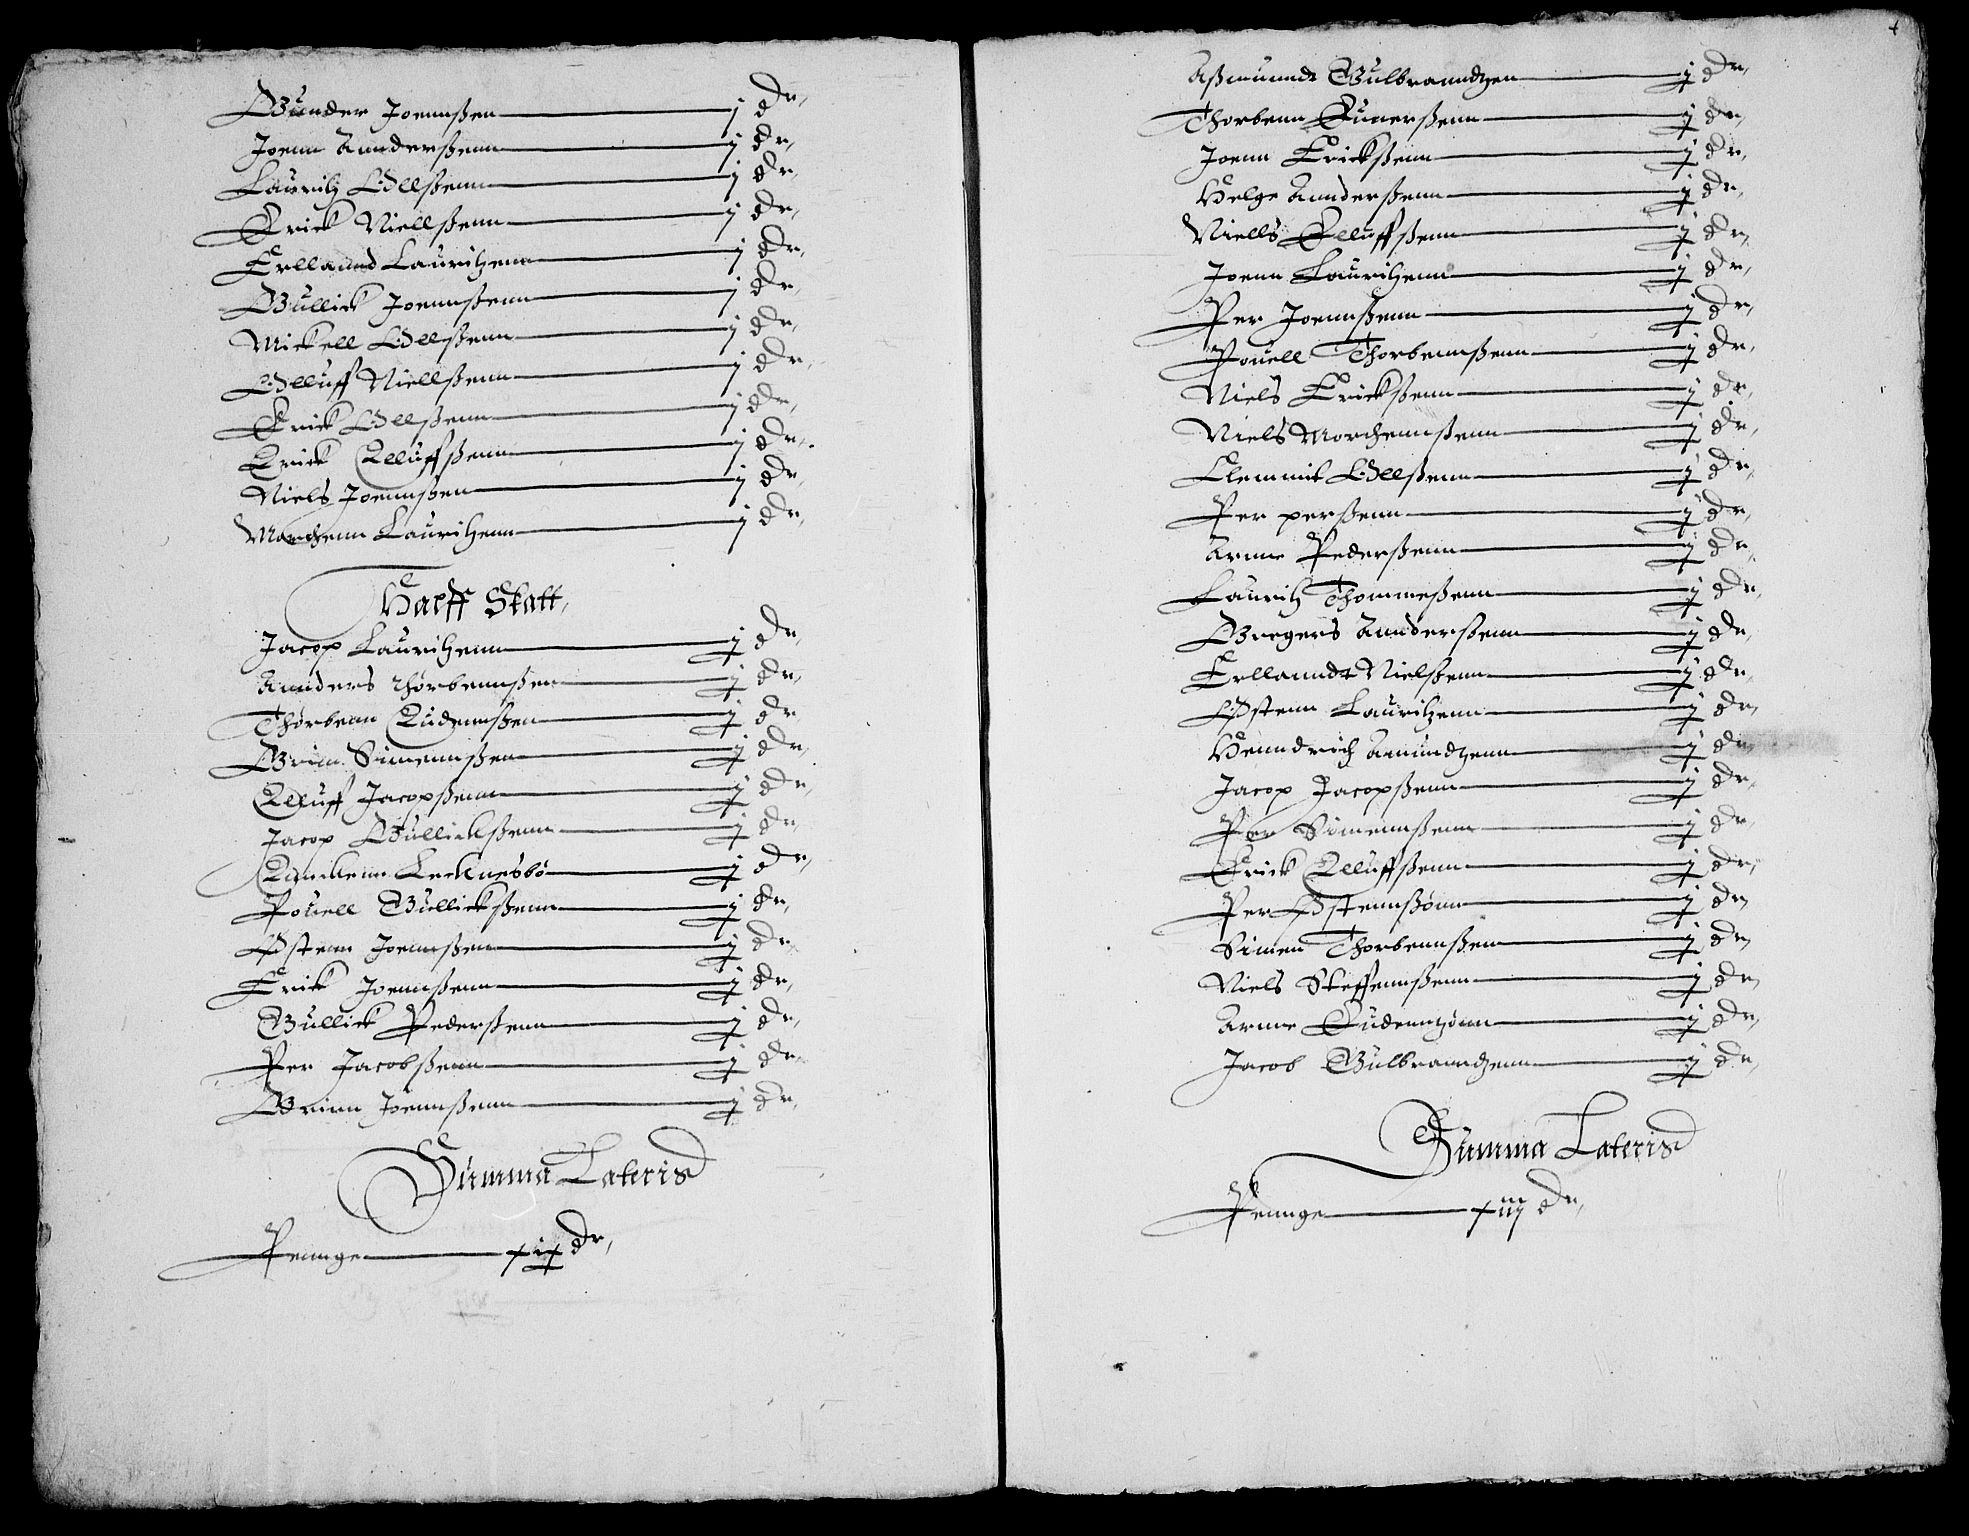 Gunder Joennßen j dr,
Joenn Annderßenn j dr,
Lauritz Ollßenn j dr,
Erick Niellßenn j dr,
Erllannd Lauritzenn j dr,
Gullick Joennßenn j dr,
Mickell Ollßenn j dr,
Olluff Niellßenn j dr,
Erick Ollßenn j dr,
Erick Olluffßenn j dr,
Niels Joennßen j dr,
Morthenn Lauritzenn j dr,
Halff Skatt,
Jacop Lauritzenn j dr,
Annders Thorbennßen j dr,
Thorbenn Audennßen j dr,
Grim Simennßen j dr,
Olluff Jacopßenn j dr,
Jacop Gullickßenn j dr,
j dr,
Pouell Gullickßenn j dr,
Østenn Joennßen j dr,
Erick Joennßenn j dr,
Gullick Pederßenn j dr,
Per Jacobßenn j dr,
Joennßenn j dr,
Summa Lateris
Pennge xix dr,
Aßmundt Gulbranndtzen j dr,
Thorbenn Gunerßenn j dr,
Joenn Erickßenn j dr,
Helge Annderßenn j dr,
Niells Olluffßenn j dr,
Joenn Lauritzenn j dr,
Per Joennßenn j dr,
Pouell Thorbennßenn j dr,
Niels Erickßenn j dr,
Niels Morthennßenn j dr,
Clemmit Ollßenn j dr,
Per perßenn j dr,
Arnne Pederßenn j dr,
Lauritz Thommeßenn j dr,
Gregers Annderßenn j dr,
Erllanndt Nielßenn j dr,
Østenn Lauritzenn j dr,
Henndrich Amundtzenn j dr,
Jacop Jacopßenn j dr,
Per Simennßenn j dr,
Erick Olluffßenn j dr,
Per Østennßønn j dr,
Simen Thorbennßenn j dr,
Niels Steffennßenn j dr,
Arnne j dr,
Jacob Gulbranndtzenn j dr,
Summa Lateris
Pennge xiij dr,